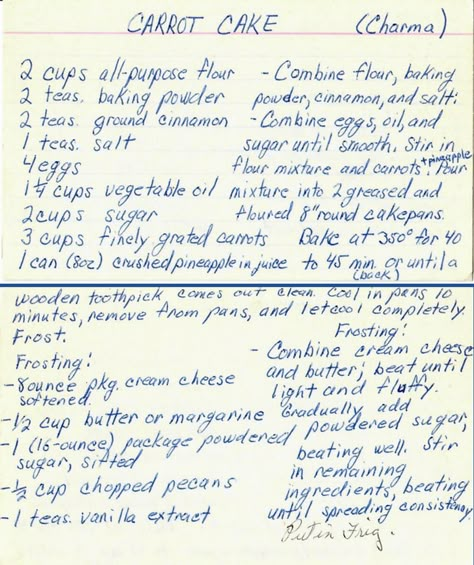 CARROT CAKE (Charma)
2 cups all-purpose flour
2 teas. baking powder
2 teas. ground cinnamon
1 teas. salt
4 eggs
1¼ cups vegetable oil
2 cups sugar
3 cups finely grated carrots
1 can (8oz) crushed pineapple in juice
- Combine flour, baking
powder, cinnamon, and salt.
- Combine eggs, oil, and
sugar until smooth. Stir in
flour mixture and carrots + pineapple. Pour
mixture into 2 greased and
floured 8" round cakepans.
Bake at 350° for 40
to 45 min. or until a
(back)
wooden toothpick comes out clean. Cool in pans 10
minutes, remove from pans, and let cool completely.
Frost.
Frosting:
- 8 ounce pkg. cream cheese
softened.
- ½ cup butter or margarine
- 1 (16-ounce) package powdered
sugar, sifted
- ½ cup chopped pecans
- 1 teas. vanilla extract
Frosting:
- Combine cream cheese
and butter; beat until
light and fluffy.
Gradually add
powdered sugar,
beating well. Stir
in remaining
ingredients, beating
until spreading consistency
Put in Frig.